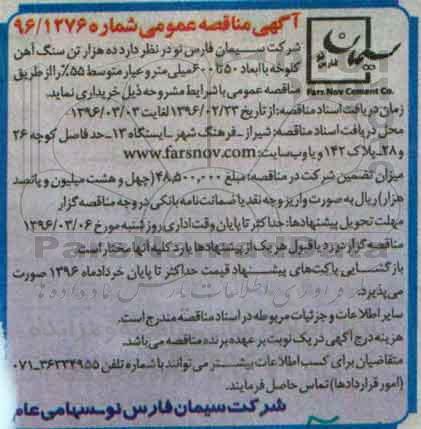 آگهی مناقصه عمومی شماره ۹۶/۱۲۷۶
سیمان
فارس نو
Fars Nov Cement Co.
شرکت سیمان فارس نو در نظر دارد ده هزار تن سنگ آهن
کلوخه با ابعاد ۵۰ تا ۶۰۰ میلی متر و عیار متوسط ۵۵٪ را از طریق
مناقصه عمومی با شرایط مشروحه ذیل خریداری نماید.
زمان دریافت اسناد مناقصه: از تاریخ ۱۳۹۶/۰۲/۲۳ لغایت ۱۳۹۶/۰۳/۰۳
محل دریافت اسناد مناقصه: شیراز ـ فرهنگ شهر ـ ایستگاه ۱۳ ـ حد فاصل کوچه ۲۶
و ۲۸ ـ پلاک ۱۴۲ و یا وب سایت: www.farsnov.com
میزان تضمین شرکت در مناقصه: مبلغ ۴۸,۵۰۰,۰۰۰ (چهل و هشت میلیون و پانصد
هزار) ریال به صورت واریز وجه نقد یا ضمانت نامه بانکی در وجه مناقصه گزار
مهلت تحویل پیشنهادها: حداکثر تا پایان وقت اداری روز شنبه مورخ ۱۳۹۶/۰۳/۰۶
مناقصه گزار در رد یا قبول هر یک از پیشنهادها یا رد کلیه آنها مختار است.
بازگشایی پاکت های پیشنهاد قیمت حداکثر تا پایان خردادماه ۱۳۹۶ صورت
می پذیرد.
سایر اطلاعات و جزئیات مربوطه در اسناد مناقصه مندرج است.
هزینه درج آگهی در یک نوبت بر عهده برنده مناقصه می باشد.
متقاضیان برای کسب اطلاعات بیشتر می توانند با شماره تلفن ۳۶۳۳۴۹۵۵-۰۷۱
(امور قراردادها) تماس حاصل فرمایند.
شرکت سیمان فارس نو ـ سهامی عام